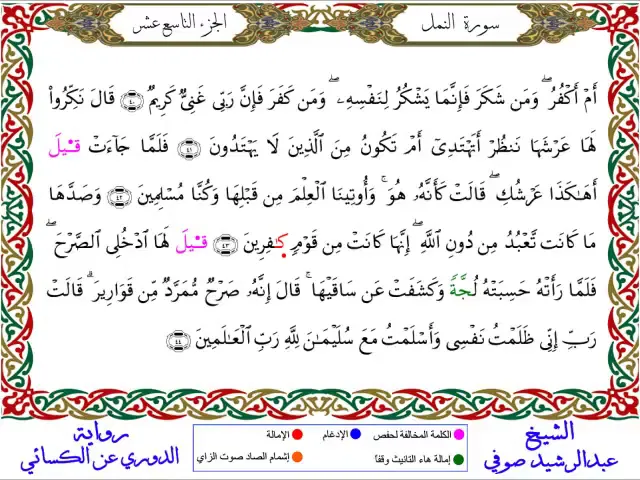 سورة النمل
الجزء التاسع عشر
أَمْ أَكْفُرُ ۖ وَمَن شَكَرَ فَإِنَّمَا يَشْكُرُ لِنَفْسِهِۦ ۖ وَمَن كَفَرَ فَإِنَّ رَبِّى غَنِىٌّ كَرِيمٌ ٤٠ قَالَ نَكِّرُوا۟
لَهَا عَرْشَهَا نَنظُرْ أَتَهْتَدِىٓ أَمْ تَكُونُ مِنَ ٱلَّذِينَ لَا يَهْتَدُونَ ٤١ فَلَمَّا جَآءَتْ قِيلَ
أَهَٰكَذَا عَرْشُكِ ۖ قَالَتْ كَأَنَّهُۥ هُوَ ۚ وَأُوتِينَا ٱلْعِلْمَ مِن قَبْلِهَا وَكُنَّا مُسْلِمِينَ ٤٢ وَصَدَّهَا
مَا كَانَت تَّعْبُدُ مِن دُونِ ٱللَّهِ ۖ إِنَّهَا كَانَتْ مِن قَوْمٍ كَٰفِرِينَ ٤٣ قِيلَ لَهَا ٱدْخُلِى ٱلصَّرْحَ ۖ
فَلَمَّا رَأَتْهُ حَسِبَتْهُ لُجَّةً وَكَشَفَتْ عَن سَاقَيْهَا ۚ قَالَ إِنَّهُۥ صَرْحٌ مُّمَرَّدٌ مِّن قَوَارِيرَ ۗ قَالَتْ
رَبِّ إِنِّى ظَلَمْتُ نَفْسِى وَأَسْلَمْتُ مَعَ سُلَيْمَٰنَ لِلَّهِ رَبِّ ٱلْعَٰلَمِينَ ٤٤
الشيخ
عبدالرشيد صوفي
الكلمة المخالفة لحفص
الإدغام
الإمالة
إمالة هاء التانيث وقفا
إشمام الصاد صوت الزاي
رواية
الدوري عن الكسائي